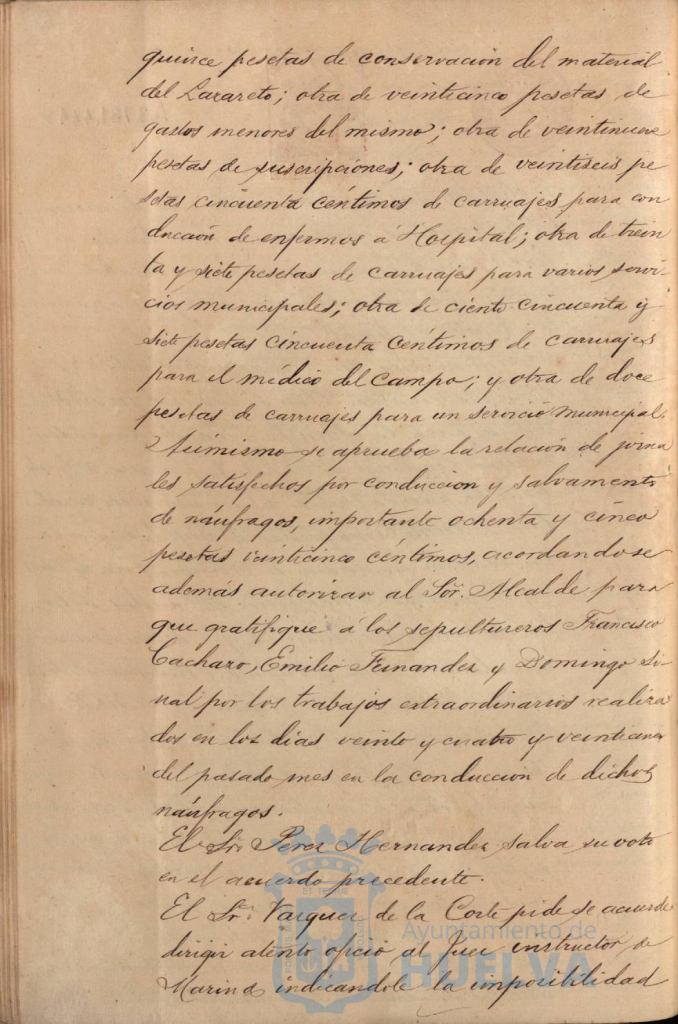 quince pesetas de conservación del material
del Lazareto; otra de veinticinco pesetas de
gastos menores del mismo; otra de veintinueve
pesetas de suscripciones; otra de veintiseis pe
setas cincuenta céntimos de carruajes para con
ducción de enfermos á Hospital; otra de trein
ta y siete pesetas de carruajes para varios servi-
cios municipales; otra de ciento cincuenta y
siete pesetas cincuenta céntimos de carruajes
para el médico del campo; y otra de doce
pesetas de carruajes para un servicio municipal.
Asimismo se aprueba la relación de jorna
les satisfechos por conduccion y salvamento
de náufragos, importante ochenta y cinco
pesetas veinticinco céntimos, acordandose
además autorizar al Sor. Alcalde para
que gratifique á los sepultureros Francisco
Cacharo, Emilio Fernandez y Domingo
por los trabajos extraordinarios realiza
dos en los dias veinte y cuatro y veinticinco
del pasado mes en la conducción de dichos
náufragos.
El Sr. Perez Hernandez salva su voto
en el acuerdo precedente.
El Sr. Vazquez de la Corte pide se acuerde
dirigir atento oficio al Juez instructor de
Marina indicandole la imposibilidad
Ayuntamiento de
HUELVA